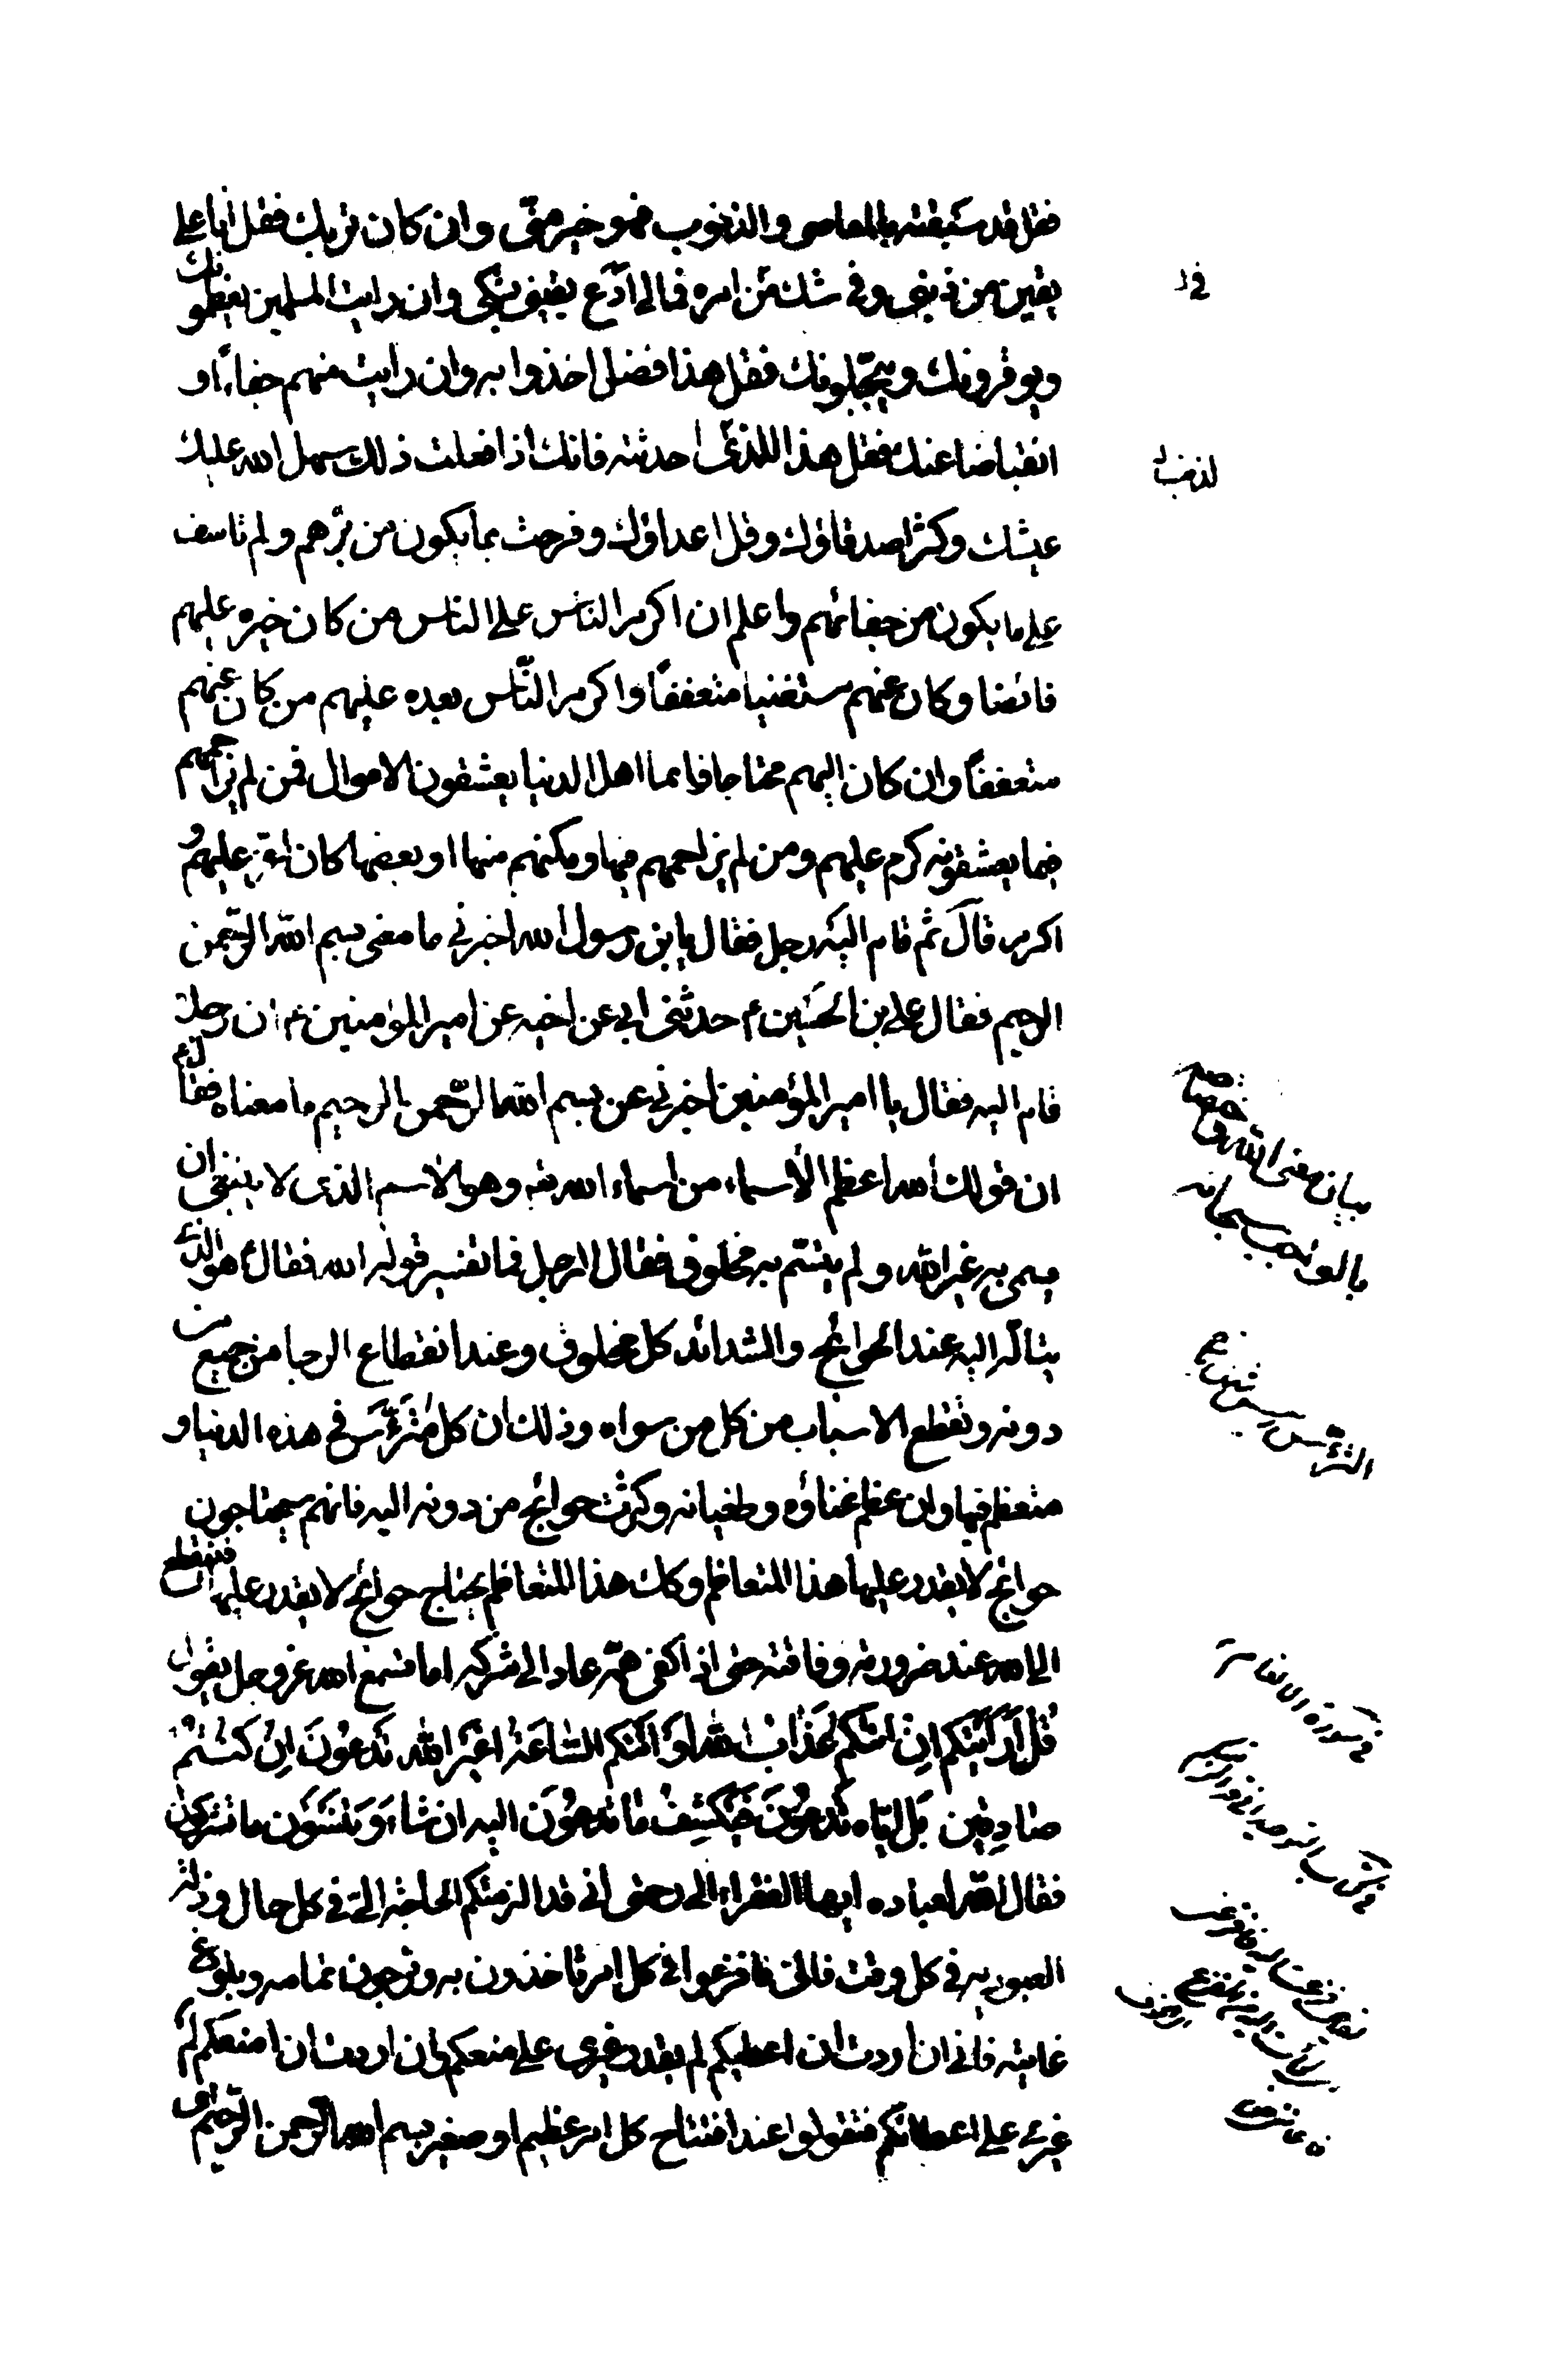 فقل قد سبقته بالمعاصى والذنوب فهو خير منّى وان كان تربك فقل انا على
يقين من ذنبى وفى شك من امره فمالى ادع يقينى بشكى وان رايت المسلمين يعظمونك
ويوقرونك ويبجلونك فقل هذا فضل اخذوا به وان رايت منهم جفاءً او
انقباضا عنك فقل هذا للذى احدثته فانك اذا فعلت ذلك سهل الله عليك
عيشك وكثر اصدقاؤك وقل اعداؤك وفرحت بما يكون من برّهم ولم تاسف
على ما يكون من جفائهم واعلم ان اكرم الناس على الناس من كان خيره عليهم
فائضا وكان عنهم مستغنيا متعففًا واكرم النّاس بعده عليهم من كان عنهم
متعففًا وان كان اليهم محتاجا فانما اهل الدنيا يعشقون الاموال فمن لم يزاحمهم
فيما يعشقونه كرم عليهم ومن لم يزاحمهم فيها ومكنهم منها او بعضها كان اعز عليهم و
اكرم قال ثم قام اليه رجل فقال يابن رسول الله اخبرنى ما معنى بسم الله الرّحمن
الرحيم فقال على بن الحسين ع حدثنى ابى عن اخيه عن امير المؤمنين ع ان رجلا
قام اليه فقال يا امير المؤمنين اخبرنى عن بسم الله الرّحمن الرحيم ما معناه فقال
ان قولك الله اعظم الأسماء من اسماء الله وهو الاسم الذى لا ينبغى ان
يسمى به غير الله ولم يتسم به مخلوق فقال الرجل فما تفسير قوله الله فقال هو الذى
يتالّه اليه عند الحوائج والشدائد كل مخلوق وعند انقطاع الرجا من جميع من
دونه وتقطع الاسباب من كل من سواه وذلك ان كل مترئّس فى هذه الدنيا و
متعظم فيها وان عظم غناؤه وطغيانه وكثرت حوائج من دونه اليه فانهم سيحتاجون
حوائج لا يقدر عليها هذا المتعاظم وكذلك هذا المتعاظم يحتاج حوائج لا يقدر عليها فينقطع
الى الله عند ضرورته وفاقته حتى اذا كفى همّه عاد الى شركه اما تسمع الله عز وجل يقول
قُلْ اَرَاَيْتَكُم اِنْ اتيكُم عَذابُ الله اَوْ اَتَتْكُم السّاعَةُ اَغَيْرَ الله تَدعُونَ اِنْ كُنتُمْ
صادِقين بَلْ ايّاه تَدعُونَ فَيَكْشِفُ ما تَدعُونَ اليه ان شاء وَتَنْسَوْن ما تشركون
فقال الله لعباده ايها الفقراء الى رحمتى انى قد الزمتكم الحاجة الىّ فى كل حال وذلة
العبودية فى كل وقت فالىّ فافزعوا فى كل امر تاخذون به وترجون تمامه وبلوغ
غايته فانى ان اردت ان اعطيكم لم يقدر غيرى على منعكم وان اردت ان امنعكم لم
غيرى على اعطائكم فتقولوا عند افتتاح كل امر عظيم او صغير بسم الله الرّحمن الرّحيم
بيان معنى الله
فى سورة الانعام